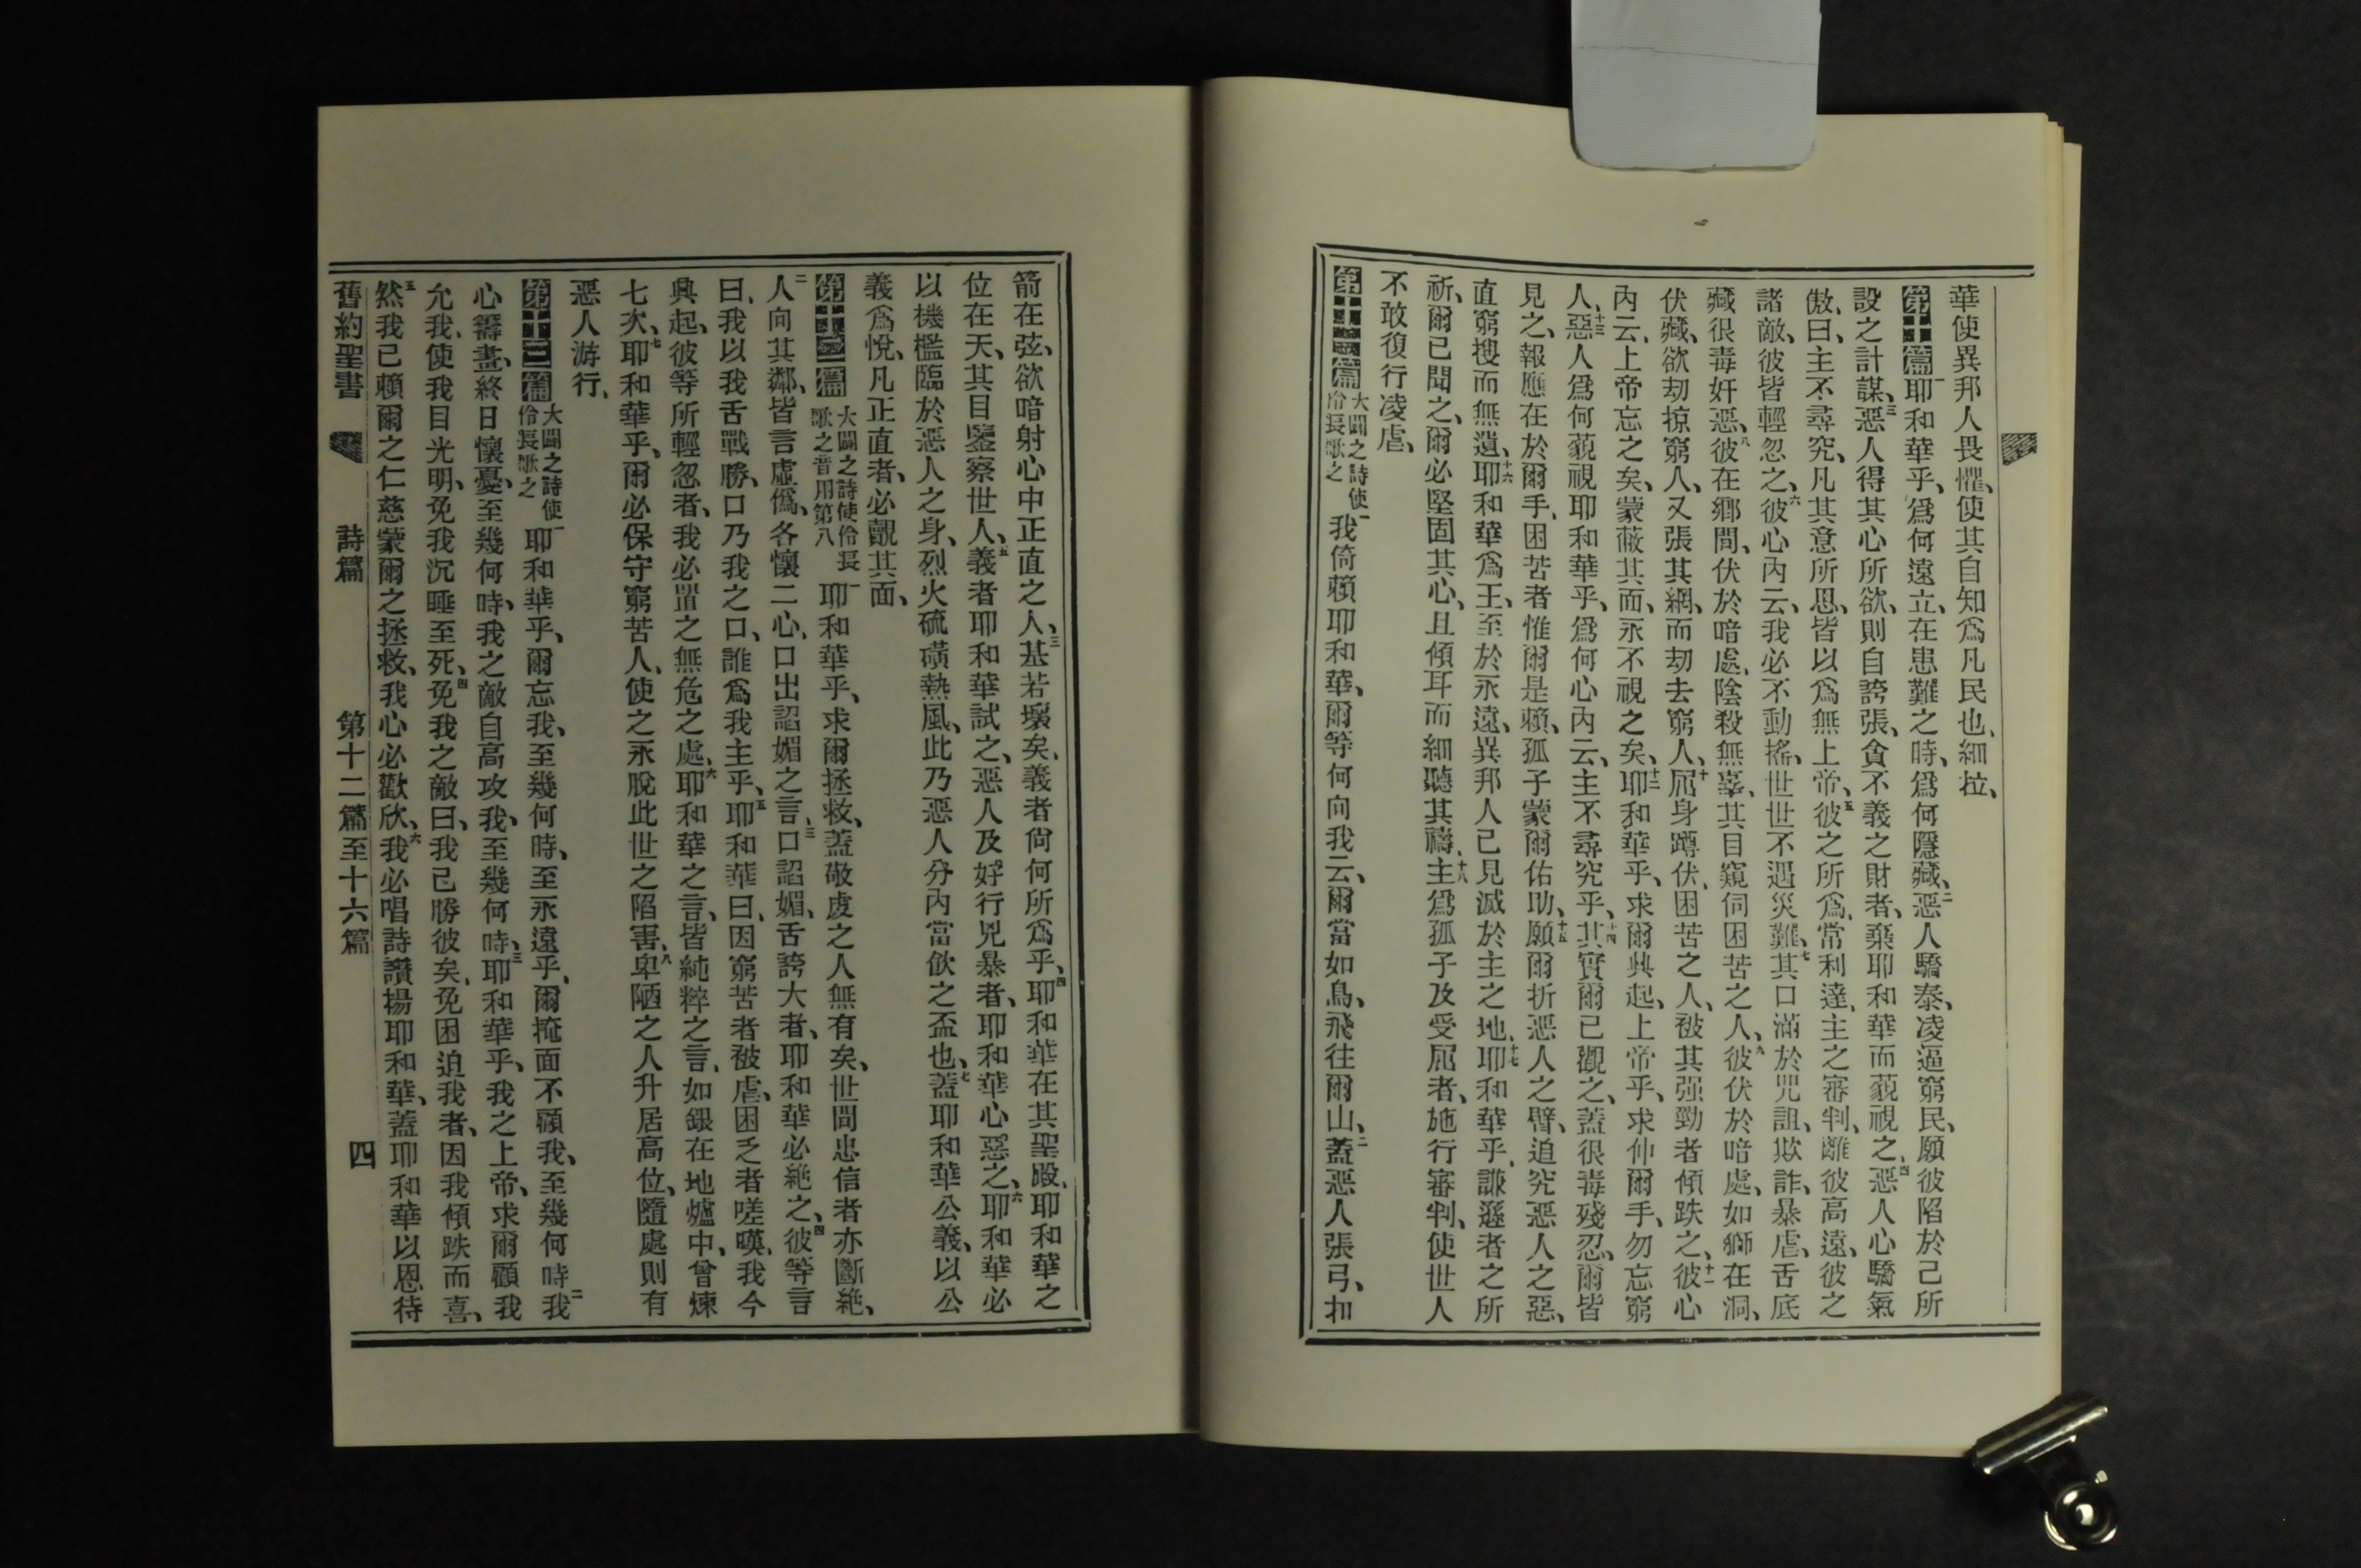 華使異邦人畏懼、使其自知爲凡民也、細拉、
第十篇 一耶和華乎、爲何遠立、在患難之時、爲何隱藏、二惡人驕泰、凌逼窮民、願彼陷於己所
設之計謀、三惡人得其心所欲、則自誇張、貪不義之財者、棄耶和華而藐視之、四惡人心驕氣
傲、曰、主不尋究、凡其意所思、皆以爲無上帝、五彼之所爲、常利達、主之審判、離彼高遠、彼之
諸敵、彼皆輕忽之、六彼心內云、我必不動搖、世世不遇災難、七其口滿於咒詛、欺詐、暴虐、舌底
藏很毒奸惡、八彼在鄉閒、伏於暗處、陰殺無辜、其目窺伺困苦之人、九彼伏於暗處、如獅在洞、
伏藏、欲刧掠窮人、又張其網、而刧去窮人、十屈身蹲伏、困苦之人、被其强勁者傾跌之、十一彼心
內云、上帝忘之矣、蒙蔽其面、永不視之矣、十二耶和華乎、求爾興起、上帝乎、求伸爾手、勿忘窮
人、十三惡人爲何藐視耶和華乎、爲何心內云、主不尋究乎、十四其實爾已觀之、蓋很毒殘忍、爾皆
見之、報應在於爾手、困苦者惟爾是賴、孤子蒙爾佑助、十五願爾折惡人之臂、追究惡人之惡、
直窮搜而無遺、十六耶和華爲王、至於永遠、異邦人已見滅於主之地、十七耶和華乎、謙遜者之所
祈、爾已聞之、爾必堅固其心、且傾耳而細聽其禱、十八主爲孤子及受屈者、施行審判、使世人
不敢復行凌虐、
第十一篇 大闢之詩使伶長歌之 一我倚賴耶和華、爾等何向我云、爾當如鳥、飛往爾山、二蓋惡人張弓、扣
箭在弦、欲暗射心中正直之人、三基若壞矣、義者尙何所爲乎、四耶和華在其聖殿、耶和華之
位在天、其目鑒察世人、五義者耶和華試之、惡人及好行兇暴者、耶和華心惡之、六耶和華必
以機檻臨於惡人之身、烈火硫磺熱風、此乃惡人分內當飮之盃也、七蓋耶和華公義、以公
義爲悅、凡正直者、必觀其面、
第十二篇 大闢之詩使伶長歌之音用第八 一耶和華乎、求爾拯救、蓋敬虔之人無有矣、世間忠信者亦斷絕、
二人向其鄰、皆言虛僞、各懷二心、口出諂媚之言、三口諂媚、舌誇大者、耶和華必絕之、四彼等言
曰、我以我舌戰勝、口乃我之口、誰爲我主乎、五耶和華曰、因窮苦者被虐、困乏者嗟嘆、我今
興起、彼等所輕忽者、我必置之無危之處、六耶和華之言、皆純粹之言、如銀在地爐中、曾煉
七次、七耶和華乎、爾必保守窮苦人、使之永脫此世之陷害、八卑陋之人升居高位、隨處則有
惡人游行、
第十三篇 大闢之詩使伶長歌之 一耶和華乎、爾忘我、至幾何時、至永遠乎、爾掩面不顧我、至幾何時、二我
心籌畫、終日懷憂、至幾何時、我之敵自高攻我、至幾何時、三耶和華乎、我之上帝、求爾顧我
允我、使我目光明、免我沉睡至死、四免我之敵曰、我已勝彼矣、免困迫我者、因我傾跌而喜、
五然我已賴爾之仁慈、蒙爾之拯救、我心必歡欣、六我必唱詩讚揚耶和華、蓋耶和華以恩待
舊約聖書 詩篇 第十二篇至十六篇 四